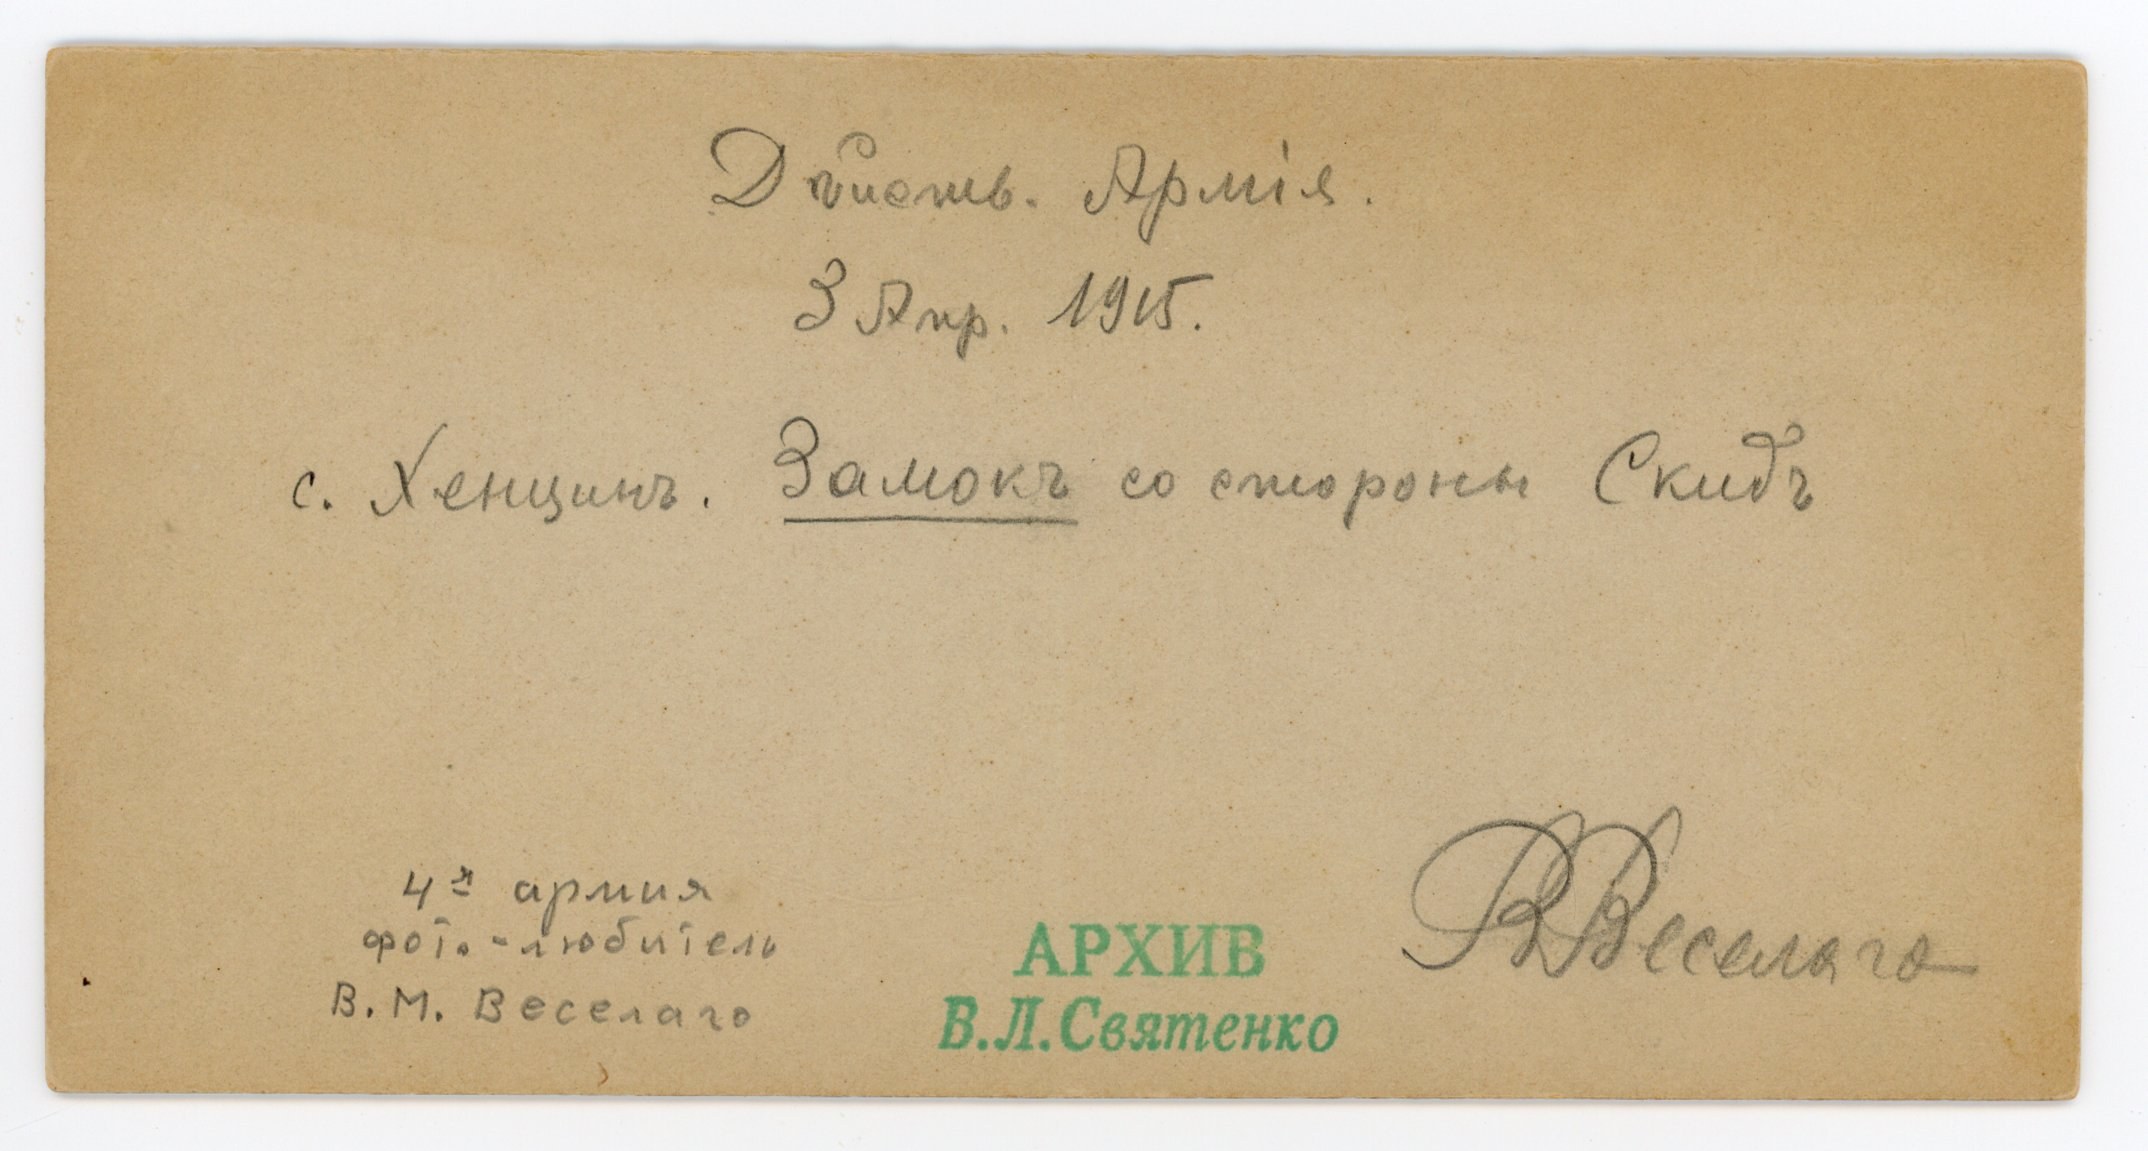 Дѣйств. Армія.
3 Апр. 1915.
с. Хенцинъ. Замокъ со стороны Скибъ
4я армия
фот.-любитель
В. М. Веселаго
АРХИВ
В.Л.Святенко
ВВеселаго